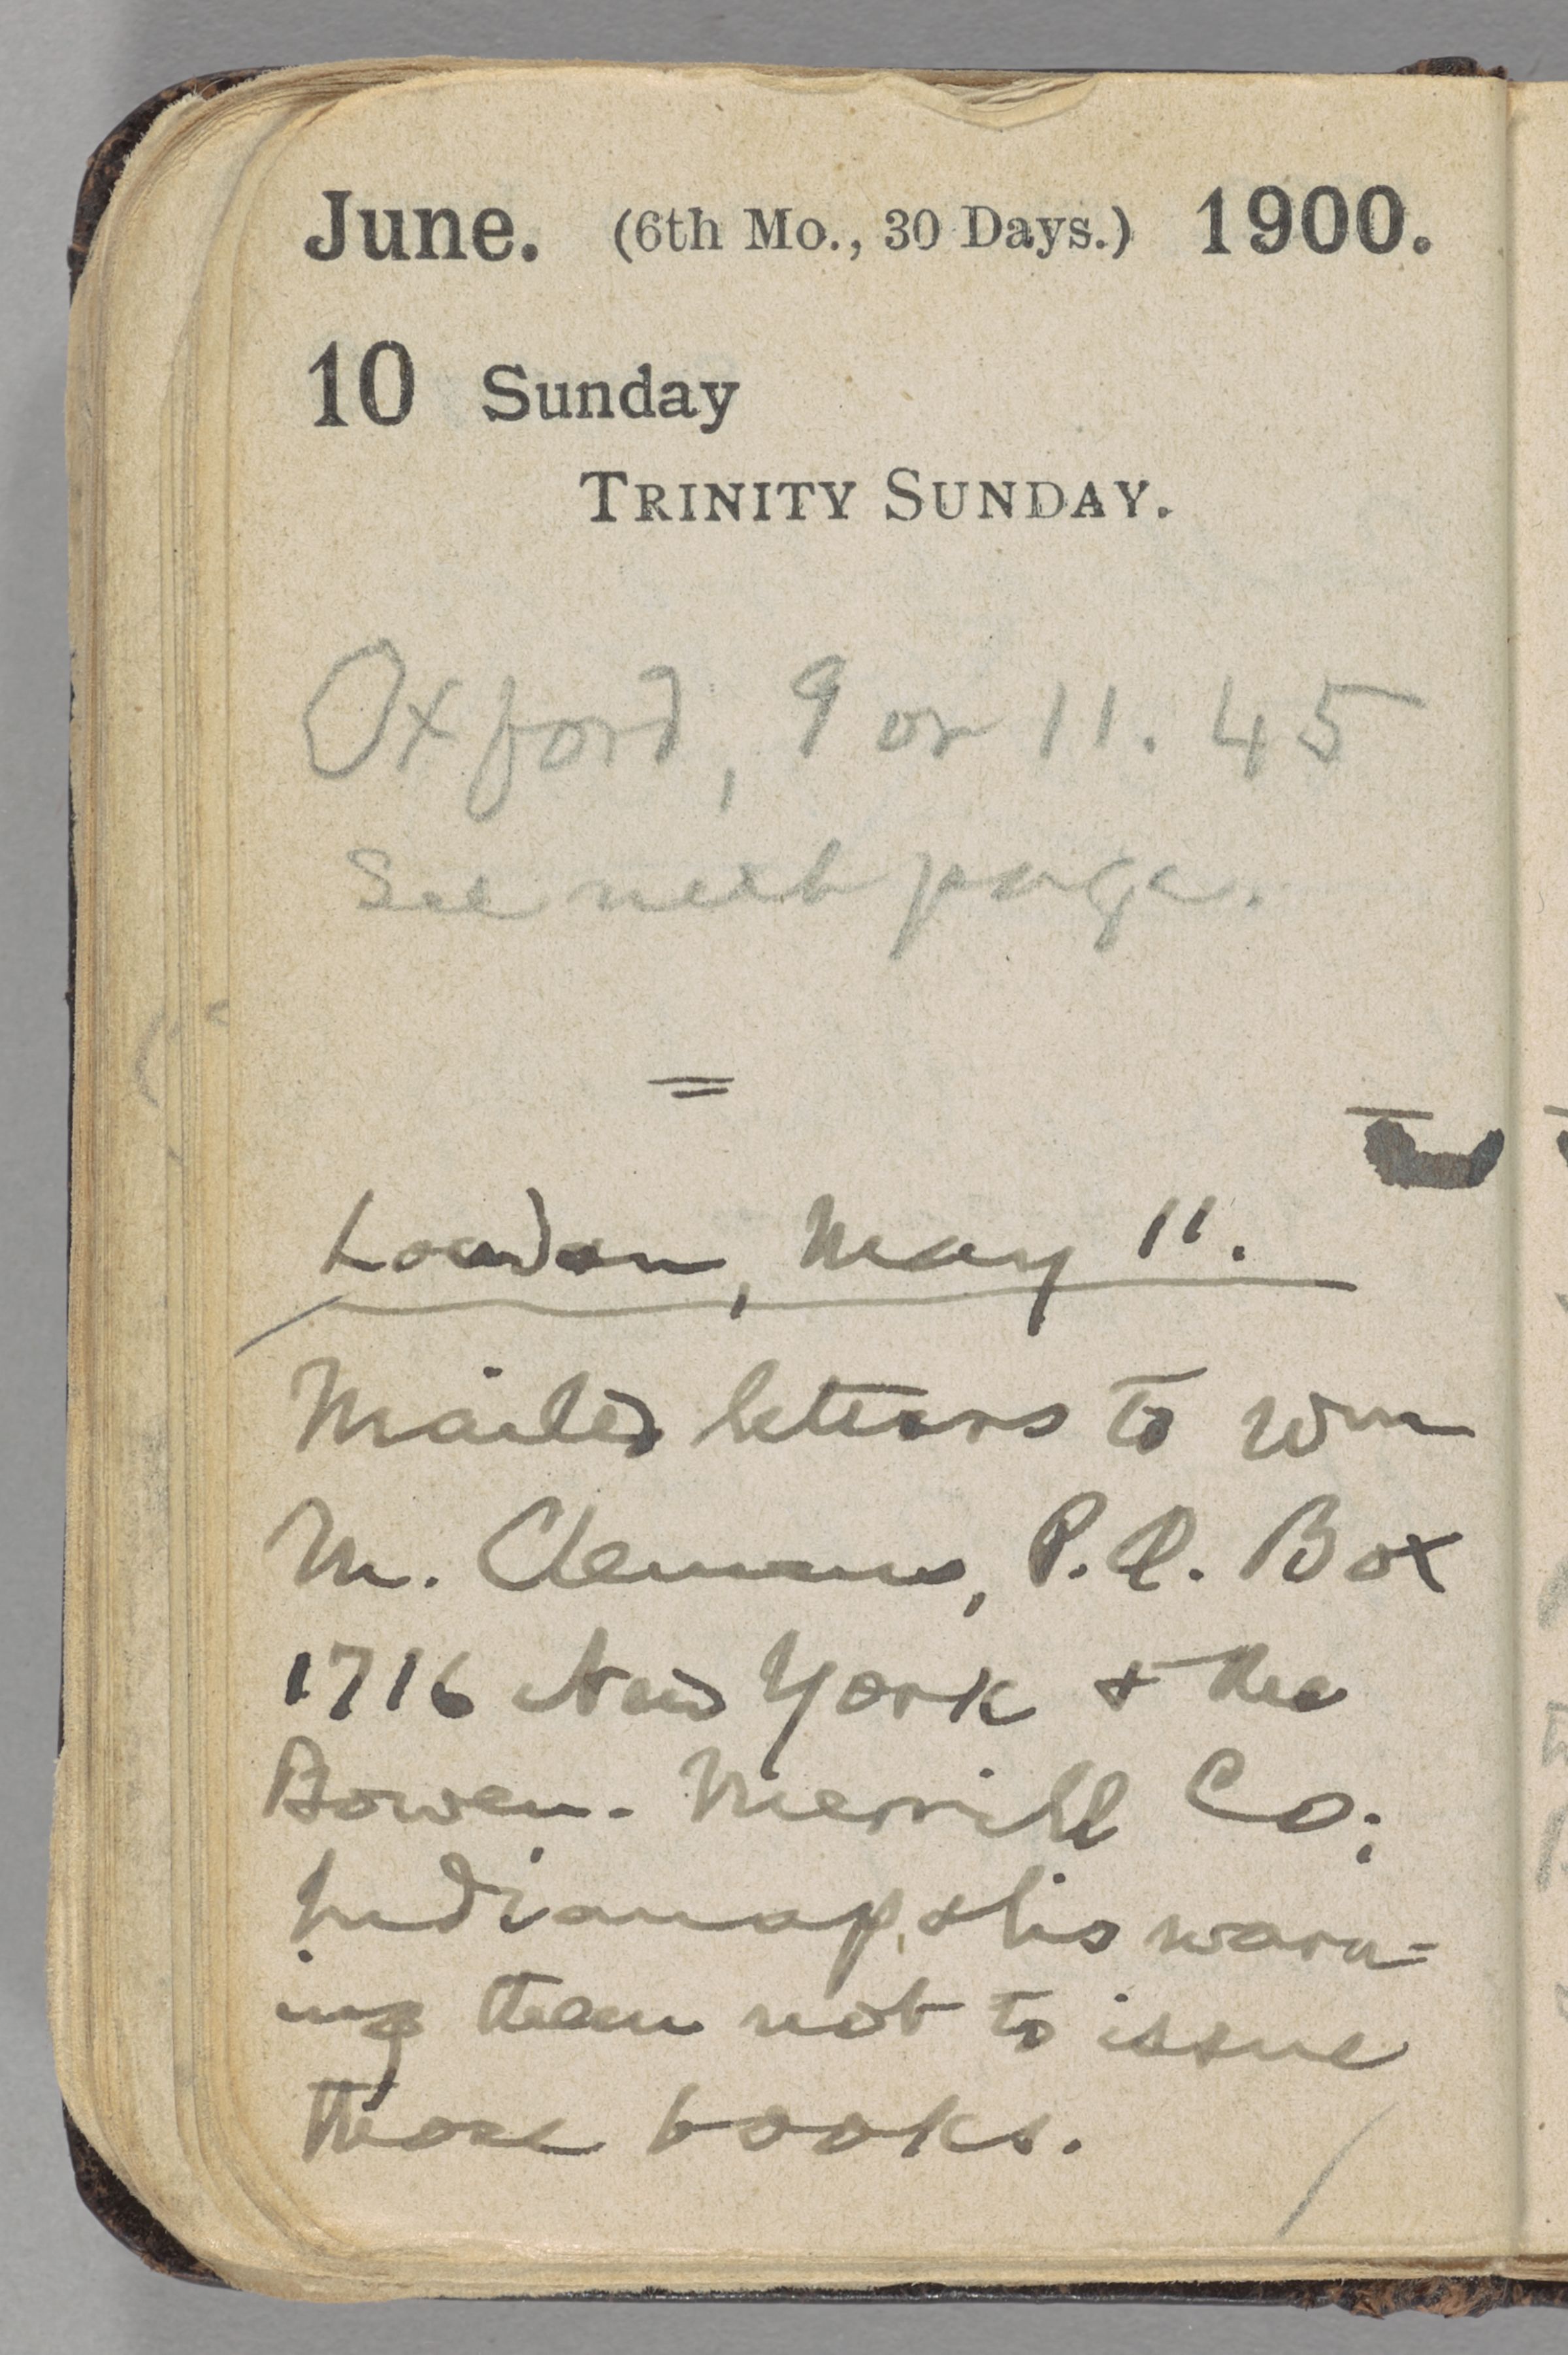 June. (6th Mo., 30 Days.) 1900.
10 Sunday
TRINITY SUNDAY.
Oxford, 9 or 11.45
See next page.
=
London, May 11.
Mailed letters to Wm
M. Clemens, P.O. Box
1716 New York & the
Bowen-Merrill Co;
Indianapolis warn=
ing them not to issue
those books.